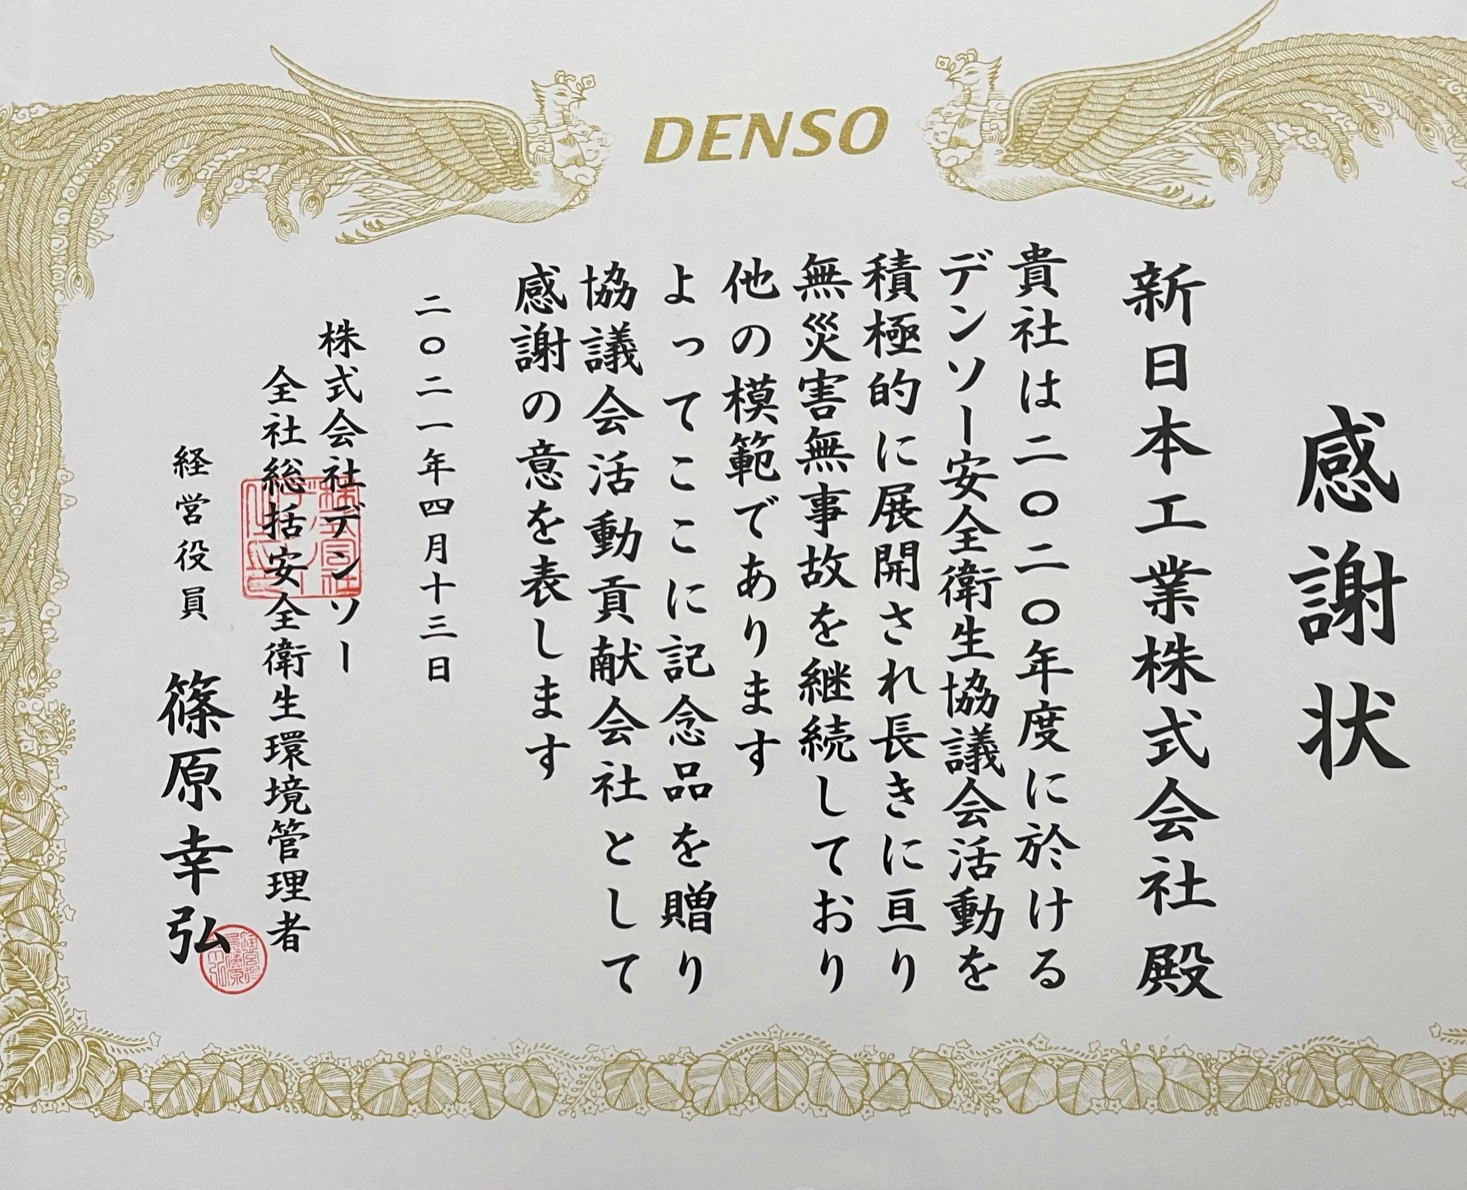 DENSO
感謝状
新日本工業株式会社 殿
貴社は二〇二〇年度に於ける
デンソー安全衛生協議会活動を
積極的に展開され長きに亘り
無災害無事故を継続しており
他の模範であります
よってここに記念品を贈り
協議会活動貢献会社として
感謝の意を表します
二〇二一年四月十三日
株式会社デンソー
全社総括安全衛生環境管理者
経営役員 篠原幸弘